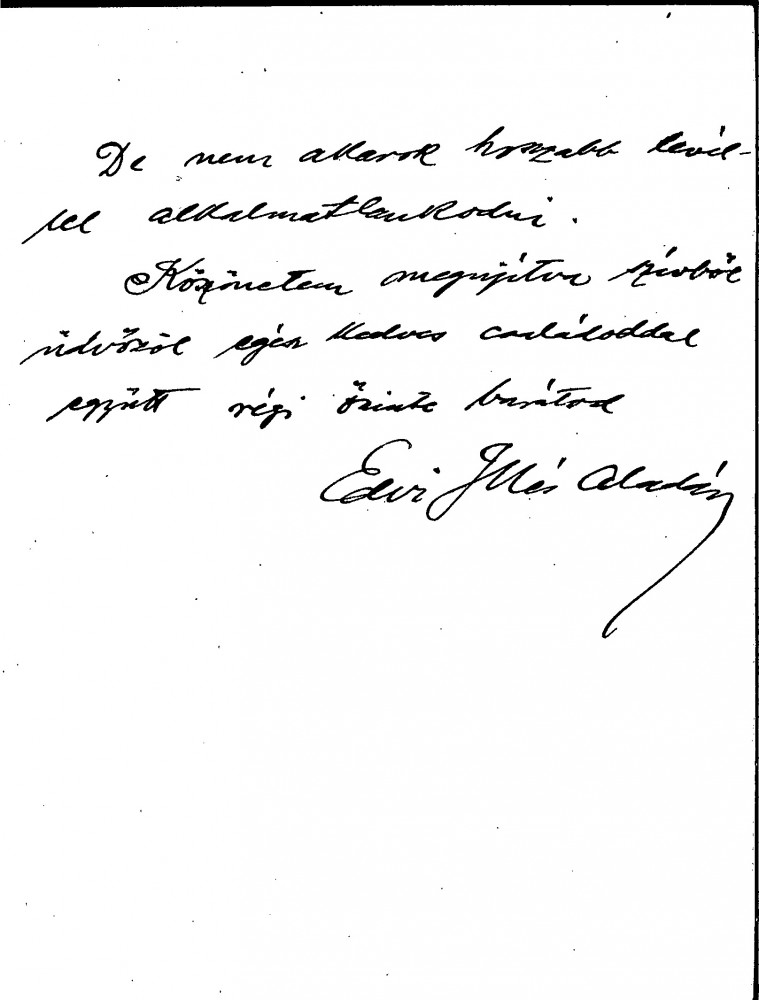 De nem akarok hosszabb levél-
lel alkalmatlankodni.
Köszönetem megujítva szívből
üdvözöl egész kedves családoddal
együtt régi őszinte barátod
Edvi Illés Aladár